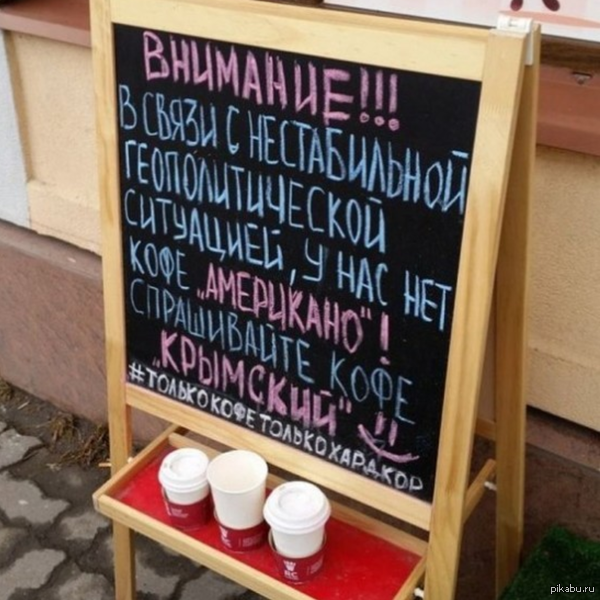 ВНИМАНИЕ!!!
В СВЯЗИ С НЕСТАБИЛЬНОЙ
ГЕОПОЛИТИЧЕСКОЙ
СИТУАЦИЕЙ, У НАС НЕТ
КОФЕ „АМЕРИКАНО"!
СПРАШИВАЙТЕ КОФЕ
„КРЫМСКИЙ"
#ТОЛЬКОКОФЕТОЛЬКОХАРДКОР
pikabu.ru